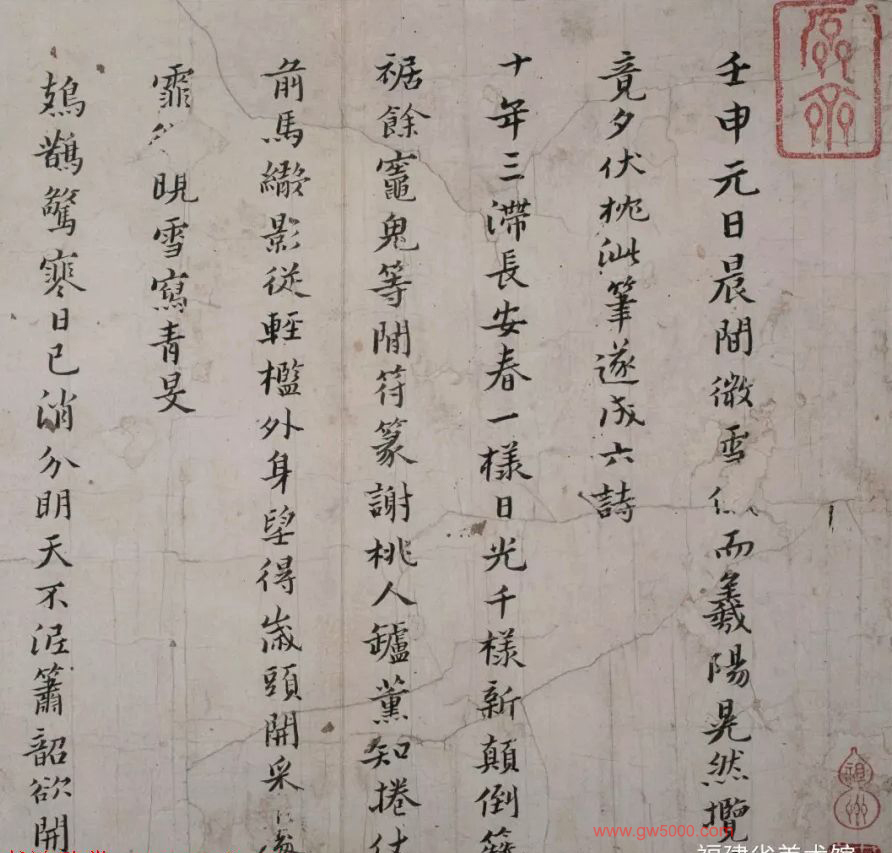 壬申元日晨間微雪 而羲陽晃然攬
竟夕伏枕泚筆遂成六詩
十年三滯長安春一樣日光千樣新顛倒
裾餘竈鬼等閒符篆謝桃人鑪薰知捲仗
前馬繖影從輕檻外身望得歲頭開采
霏 晛雪寫青旻
鳷鵲驚寒日已消分明天不涩簫韶欲開
www.gw5000.com
福建省美术馆